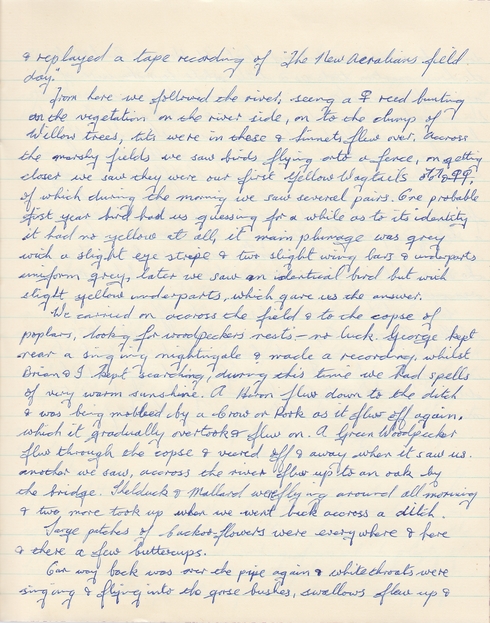 & replayed a tape recording of "The New Aeralians field
day."
From here we followed the river, seeing a ♀ reed bunting
on the vegetation on the river side, on to the clump of
Willow trees, tits were in these & linnets flew over. Across
the marshy fields we saw birds flying onto a fence, on getting
closer we saw they were our first Yellow Wagtails ♂♂ & ♀♀,
of which during the morning we saw several pairs. One probable
first year bird had us guessing for a while as to its identity
it had no yellow at all, it main plumage was grey
with a slight eye stripe & two slight wing bars & underparts
uniform grey, later we saw an identical bird but with
slight yellow underparts, which gave us the answer.
We carried on accross the field & to the copse of
poplars, looking for woodpeckers nests – no luck. George kept
near a singing nightingale & made a recording, whilst
Brian & I kept searching, during this time we had spells
of very warm sunshine. A Heron flew down to the ditch
& was being mobbed by a Crow or Rook as it flew off again,
which it gradually overtook & flew on. A Green Woodpecker
flew through the copse & veered off & away when it saw us.
another we saw, accross the river flew up to an oak by
the bridge. Shelduck & Mallard were flying around all morning
& two more took up when we went back accross a ditch.
Large pitches of cuckoo-flowers were everywhere & here
& there a few buttercups.
Our way back was over the pipe again & whitethroats were
singing & flying into the gorse bushes, swallows flew up &